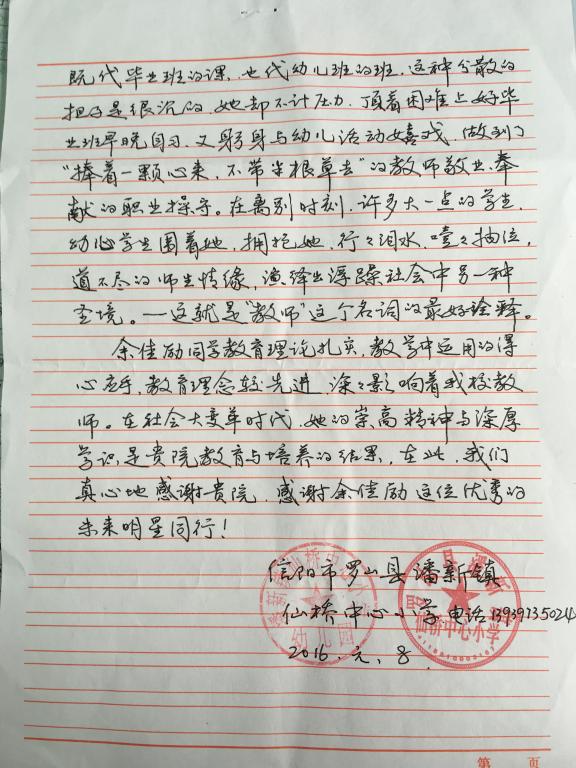 既代毕业班的课，也代幼儿班的班，这种分散的
担子是很沉的，她却不计压力，顶着困难上好毕
业班早晚自习，又躬身与幼儿活动嬉戏，做到了
“捧着一颗心来，不带半根草去”的教师敬业、奉
献的职业操守。在离别时刻，许多大一点的学生，
幼小学生围着她，拥抱她，行々泪水，噎々抽泣，
道不尽的师生情缘，演绎出浮躁社会中另一种
圣境。一这就是“教师”这个名词的最好诠释。
余佳励同学教育理论扎实，教学中运用的得
心应手，教育理念较先进，深々影响着我校教
师。在社会大变革时代，她的崇高精神与深厚
学识是贵院教育与培养的结果，在此，我们
真心地感谢贵院，感谢余佳励这位优秀的
未来明星同行！
信阳市罗山县潘新镇
仙桥中心小学 电话13939735024
2016.元.8.
仙桥中心小学
幼儿园
第 页